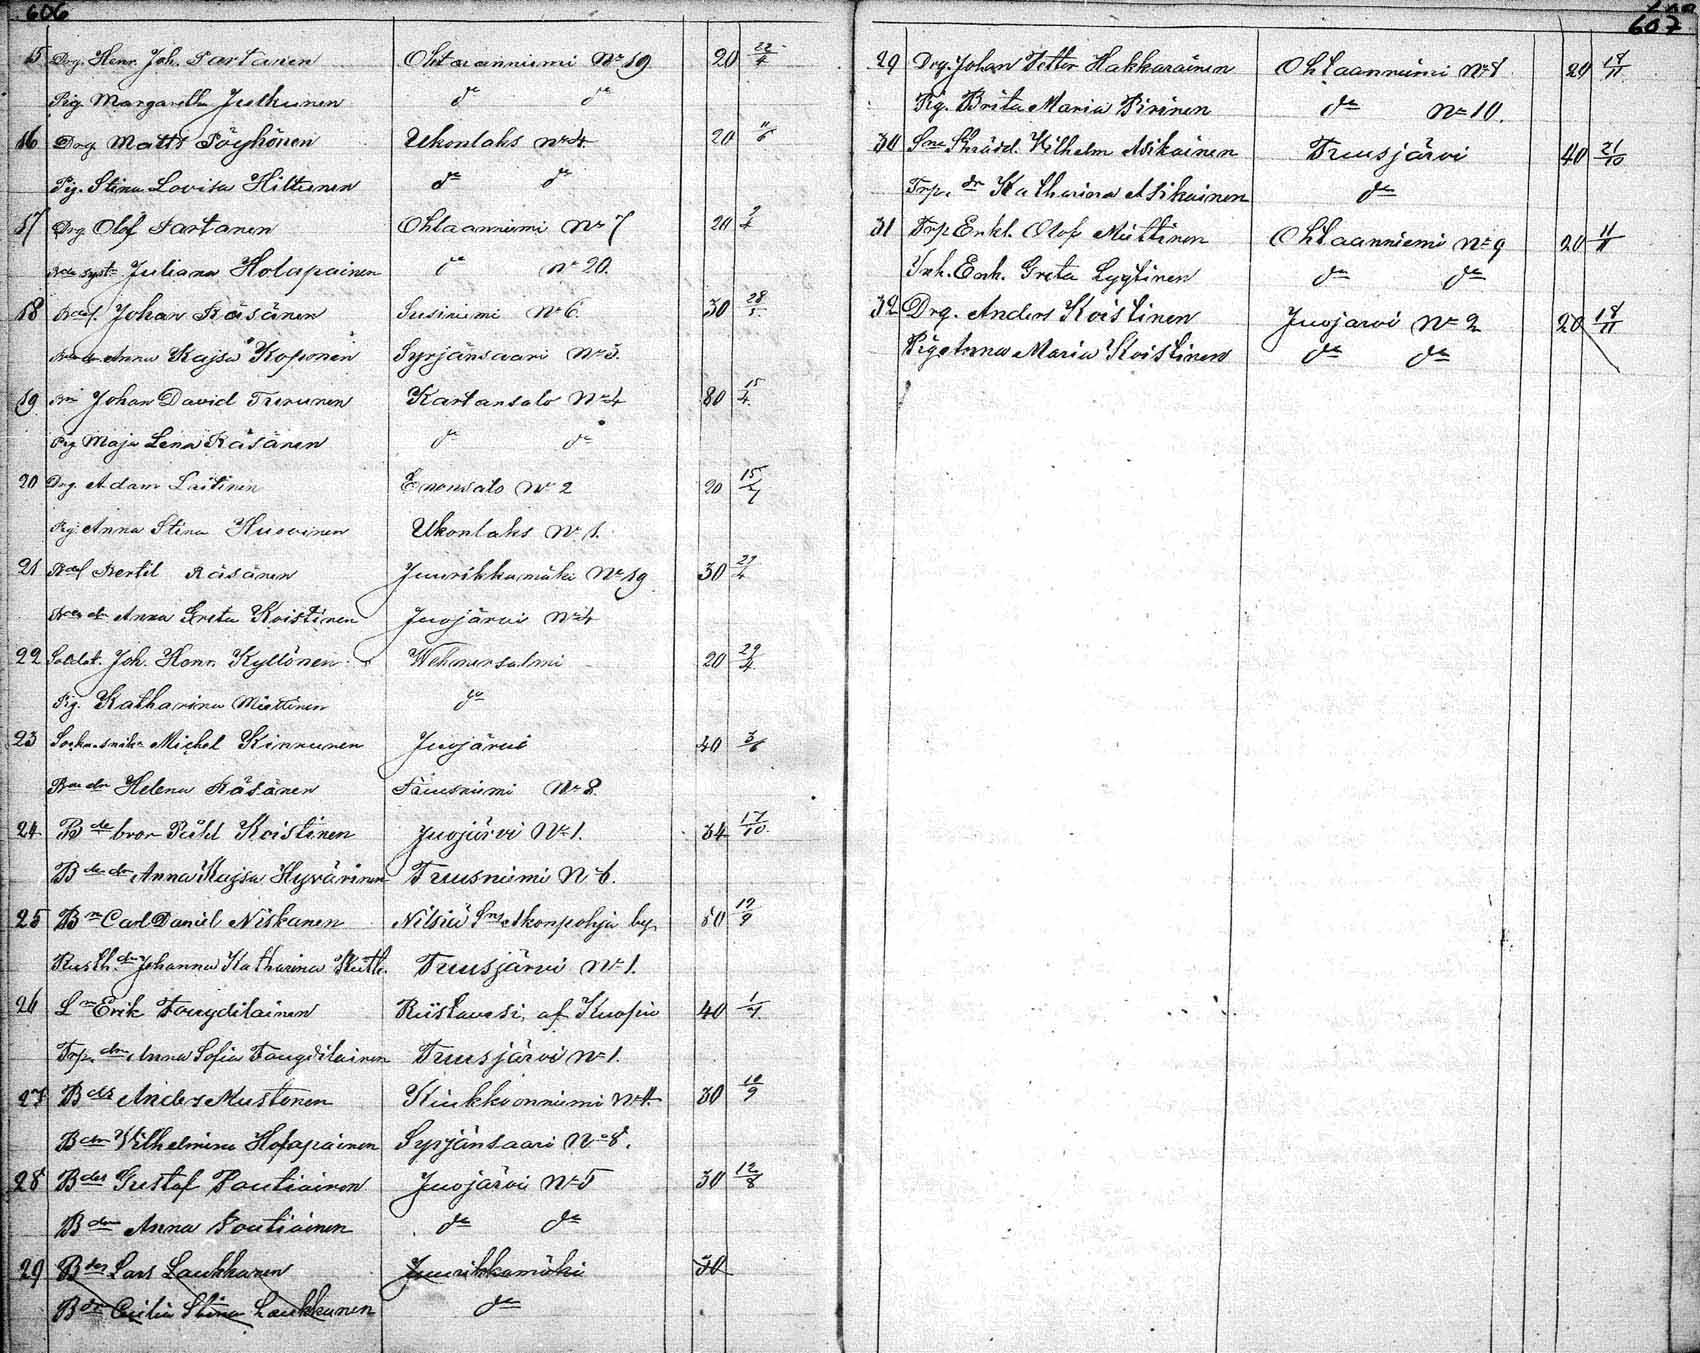 606
15 Drg. Henr. Joh. Partanen Ohtaanniemi No 19 20 22/4
Pig. Margaretha Julkunen do do
16 Drg Matts Pöyhönen Ukonlaks No 4 20 11/6
Pig. Stina Lovisa Hiltunen do do
17 Drg. Olof Partanen Ohtaanniemi No 7 20
Juliana Holapainen do No 20.
18 Johan Räsänen Susiniemi No 6. 30 28/5
Anna Kajsa Koponen Syrjänsaari No 3.
19 Johan David Turunen Kartansalo No 4 80 15/4
Pig Maja Lena Räsänen do do
20 Drg. Adam Laitinen Enonsalo No 2 20 15/4
Pig. Anna Stina Huovinen Ukonlaks No 1.
21 Bertil Räsänen Juurikkamäki No 19 30 29/4
Anna Greta Koistinen Juojärvi No 4
22 Soldat. Joh. Henr. Kyllönen Wehmersalmi 20 29/4
Pig. Katharina Miettinen do
23 Michel Kinnunen Juojärvi 40 3/6
Helena Räsänen No 8.
24 Bde bror Påhl Koistinen Juojärvi No 1. 34 17/10
Bde dr Anna Kajsa Hyvärinen Tuusniemi No 6.
25 Bn Carl Daniel Niskanen Nilsiä by 80 19/9
Johanna Katharina Tuusjärvi No 1.
26 Ln Erik Fougdilainen Riistavesi, af Kuopio 40
Trp. dr Anna Sofia Fougdilainen Tuusjärvi No 1.
27 Bds Anders Mustonen Kiukkoonniemi No 4. 30 10/9
Bdr Wilhelmina Holapainen Syrjänsaari No 8.
28 Bds Gustaf Poutiainen Juojärvi No 5 30 12/8
Bdr Anna Poutiainen do do
29 Bds Lars Laukkanen Juurikkamäki 30
Bdr Cecilia Stina Laukkanen do
607
29 Drg. Johan Petter Hakkarainen Ohtaanniemi No 8 20 18/11
Pig. Brita Maria Pirinen do No 10.
30 Sne Skrädd. Wilhelm Asikainen Tuusjärvi 40 21/10
Trp. dr Katharina Asikainen do
31 Trp Enkl. Olof Miettinen Ohtaanniemi No 9 20 11/11
Inh. Enk. Greta Lyytinen do do
32 Drg. Anders Koistinen Juojärvi No 2 20 18/11
Pig Anna Maria Koistinen do do